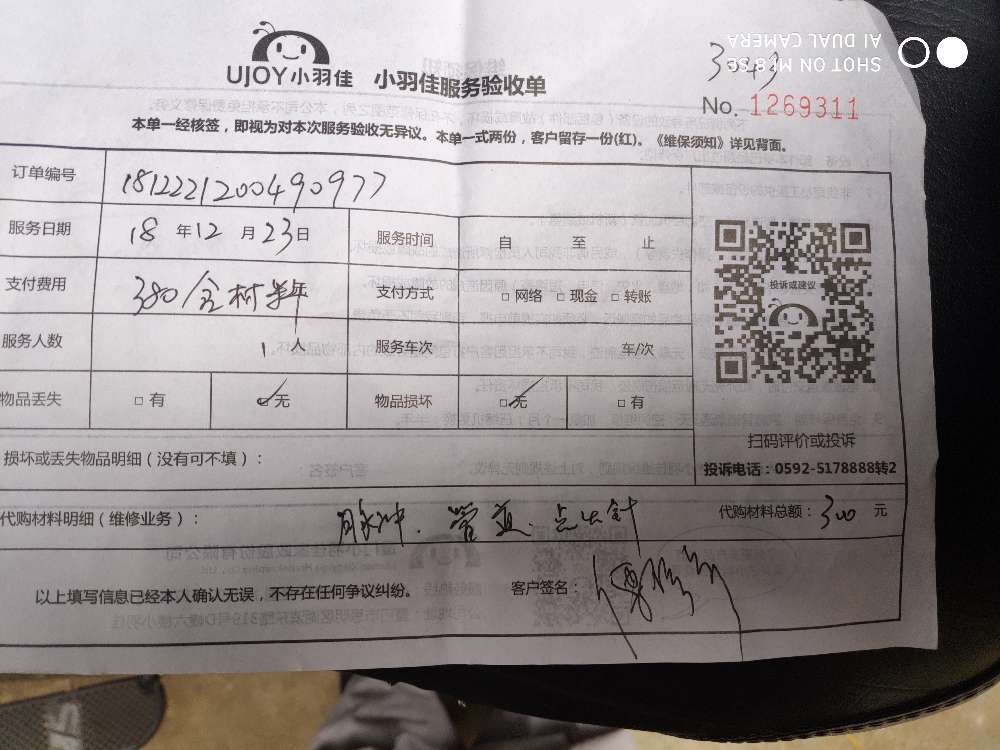 SHOT ON MI 8 SE
AI DUAL CAMERA
UJOY小羽佳 小羽佳服务验收单
3043
No 1269311
本单一经核签，即视为对本次服务验收无异议。本单一式两份，客户留存一份(红)。《维保须知》详见背面。
订单编号 181222120049 0977
服务日期 18 年 12 月 23 日 服务时间 自 至 止
支付费用 380/ 半年 支付方式 □ 网络 □ 现金 □ 转账
服务人数 1 人 服务车次 车/次
物品丢失 □ 有 ☑ 无 物品损坏 ☑ 无 □ 有
投诉或建议
扫码评价或投诉
投诉电话：0592-5178888转2
损坏或丢失物品明细（没有可不填）：
代购材料明细（维修业务）： 点火针 代购材料总额：300 元
以上填写信息已经本人确认无误，不存在任何争议纠纷。 客户签名：